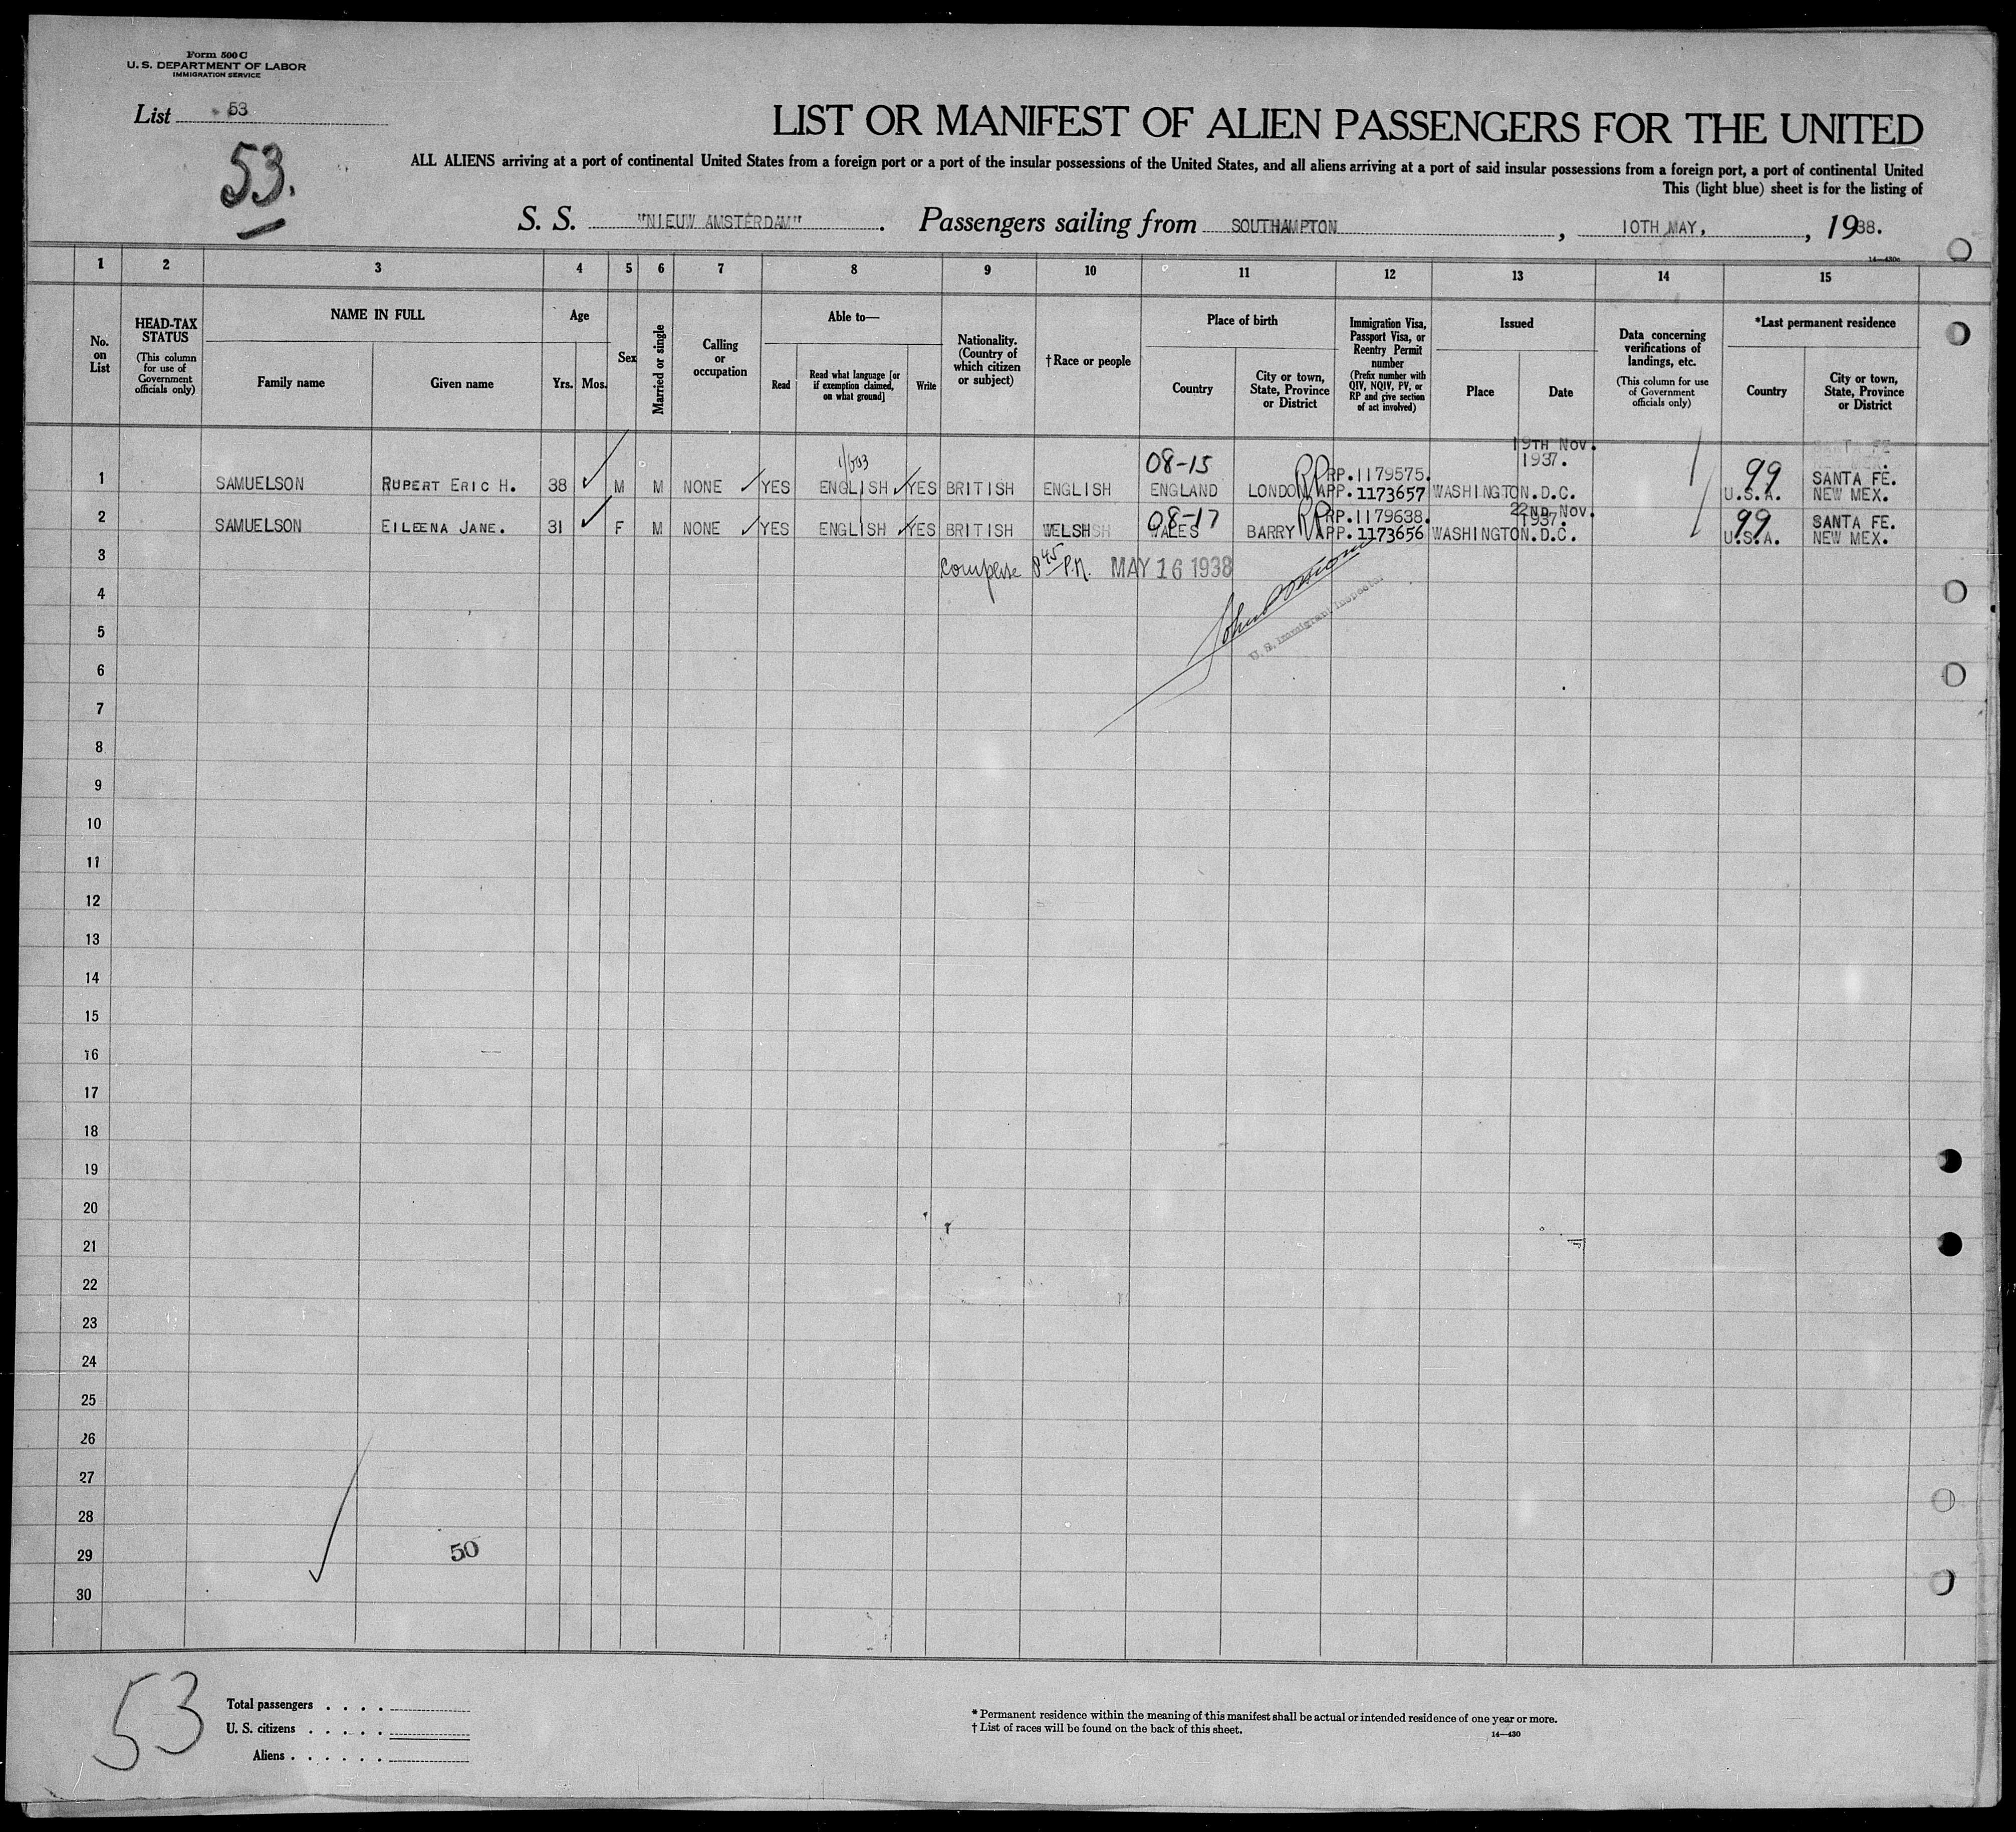 Form 500 C
U. S. DEPARTMENT OF LABOR
IMMIGRATION SERVICE
List 53
53.
LIST OR MANIFEST OF ALIEN PASSENGERS FOR THE UNITED
ALL ALIENS arriving at a port of continental United States from a foreign port or a port of the insular possessions of the United States, and all aliens arriving at a port of said insular possessions from a foreign port, a port of continental United
This (light blue) sheet is for the listing of
S. S. "NIEUW AMSTERDAM". Passengers sailing from SOUTHAMPTON, 10TH MAY, 1938.
1 2 3 4 5 6 7 8 9 10 11 12 13 14 15
No. on List
HEAD-TAX STATUS
(This column for use of Government officials only)
NAME IN FULL
Family name
Given name
Age
Yrs. Mos.
Sex
Married or single
Calling or occupation
Able to—
Read
Read what language [or if exemption claimed, on what ground]
Write
Nationality. (Country of which citizen or subject)
† Race or people
Place of birth
Country
City or town, State, Province or District
Immigration Visa, Passport Visa, or Reentry Permit number
(Prefix number with QIV, NQIV, PV, or RP and give section of act involved)
Issued
Place
Date
Data concerning verifications of landings, etc.
(This column for use of Government officials only)
*Last permanent residence
Country
City or town, State, Province or District
08-15 RP RP.1179575. 19TH Nov. 1937. 99 SANTA FE.
1 SAMUELSON RUPERT ERIC H. 38 M M NONE YES ENGLISH YES BRITISH ENGLISH ENGLAND LONDON APP. 1173657 WASHINGTON.D.C. U.S.A. NEW MEX.
08-17 RP RP.1179638. 22ND Nov. 1937. 99 SANTA FE.
2 SAMUELSON EILEENA JANE. 31 F M NONE YES ENGLISH YES BRITISH WELSH WALES BARRY APP. 1173656 WASHINGTON.D.C. U.S.A. NEW MEX.
3 8 45 P.M. MAY 16 1938
4
5 U. S. Immigrant Inspector.
6
7
8
9
10
11
12
13
14
15
16
17
18
19
20
21
22
23
24
25
26
27
28
29 50
30
53
Total passengers . . . .
U. S. citizens . . . . .
Aliens . . . . . .
* Permanent residence within the meaning of this manifest shall be actual or intended residence of one year or more.
† List of races will be found on the back of this sheet.
14—430